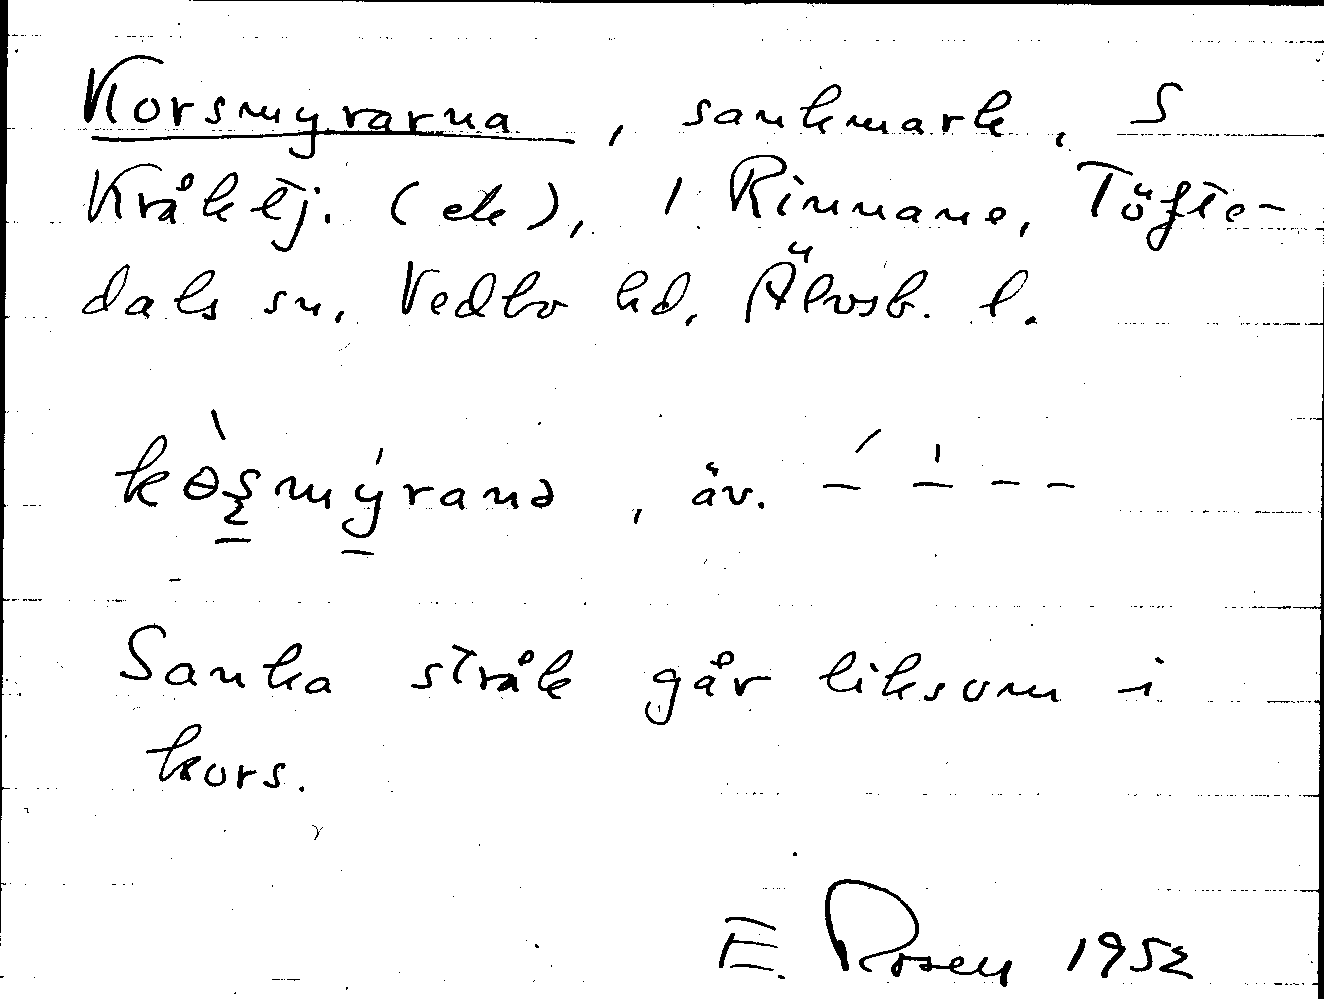 Korsmyrarna, sankmark, S
Kråktj. (ek), 1 Rinnane, Töfte-
dals sn, Vedbo hd, Älvsb. l.
, äv.
Sanka stråk går liksom i
kors.
E. Rosell 1952